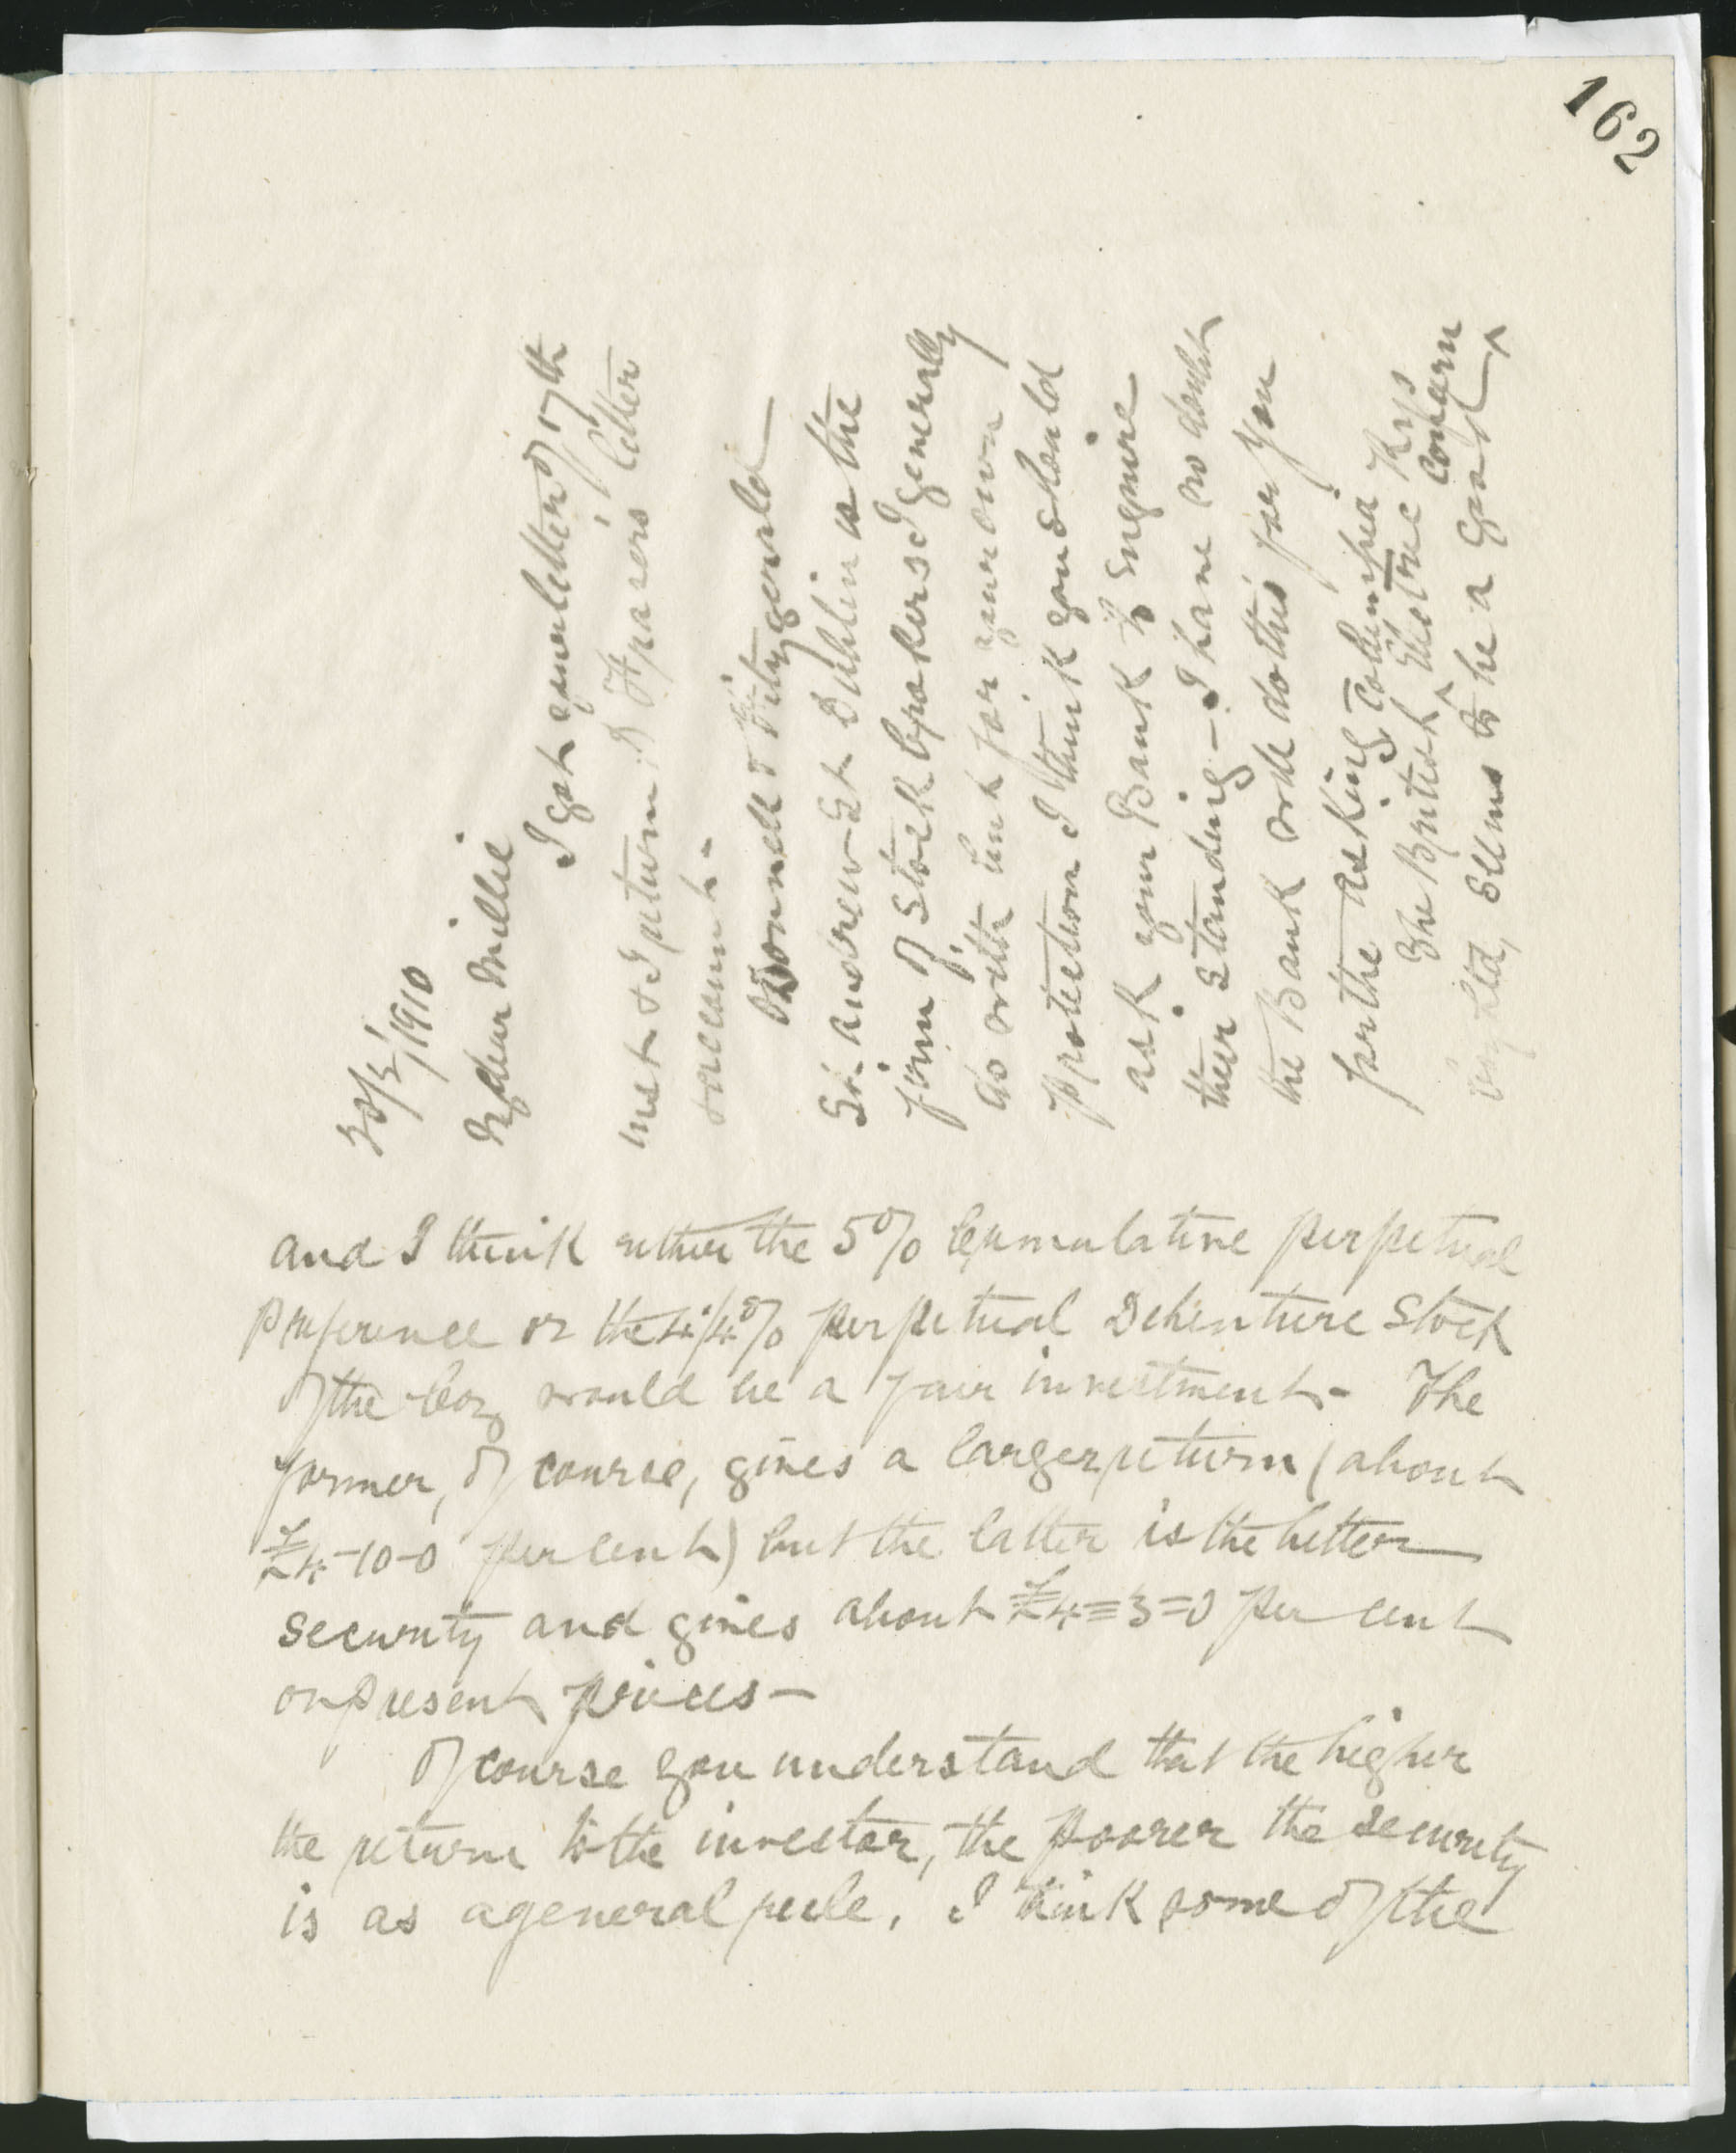 162
30/3/1910
My dear Millie
I got your letter of 17th
inst & I return D Frasers' letter
& account.
O'Donnell & Fitzgerald
St. Andrew St Dublin is the
firm of Stock brokers I generally
do with but for your own
protection I think you should
ask your Bank to enquire
their standing — I have no doubt
the Bank will do this for you
for the asking
The British Columbia Electric Rys
Company Ltd, seems to be a good
concern
and I think either the 5% Cumulative perpetual
preference or the 4¼% perpetual Debenture Stock
of the Coy would be a fair investment - The
former, of course, gives a larger return (about
£4-10-0 per cent) but the latter is the better
security and gives about £4=3=0 per cent
on present prices —
Of course you understand that the higher
the return to the investor, the poorer the security
is as a general rule. I think some of the